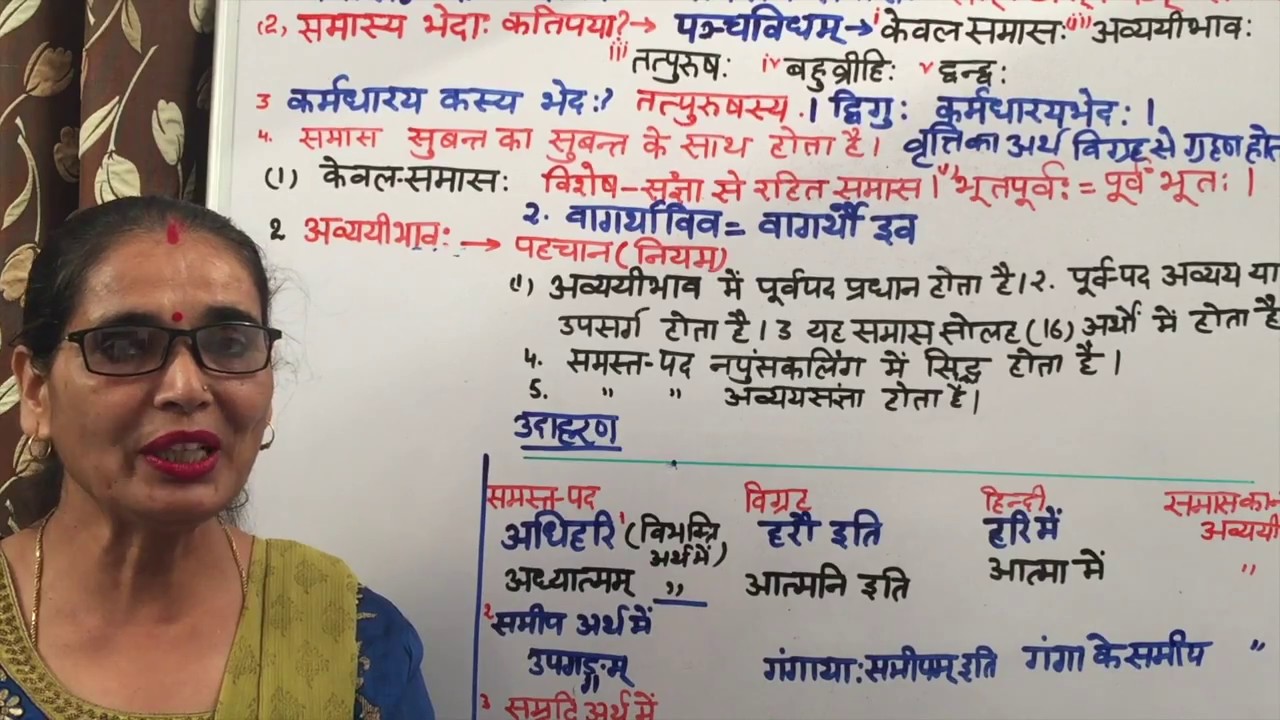 (2) समास्य भेदाः कतिपया?→ पञ्चविधम्→ i केवलसमासः ii) अव्ययीभावः
iii तत्पुरुषः iv बहुव्रीहिः v द्वन्द्वः
3 कर्मधारय कस्य भेदः? तत्पुरुषस्य.। द्विगुः कर्मधारयभेदः।
4. समास सुबन्त का सुबन्त के साथ होता है। वृत्ति का अर्थ विग्रह से ग्रहण होत
(1) केवल-समासः विशेष-संज्ञा से रहित समास। (1) भूतपूर्वः = पूर्वं भूतः।
२. वागर्थाविव = वागर्थौ इव
2 अव्ययीभावः → पहचान (नियम)
(1) अव्ययीभाव में पूर्वपद प्रधान होता है। २. पूर्व-पद अव्यय या
उपसर्ग होता है। 3 यह समास सोलह (16) अर्थों में होता है
4. समस्त-पद नपुंसकलिंग में सिद्ध होता है।
5. " " अव्ययसंज्ञा होता है।
उदाहरण
समस्त-पद विग्रह हिन्दी समास का
अधिहरि 1 (विभक्ति अर्थ में) हरौ इति हरि में अव्ययी
अध्यात्मम् " आत्मनि इति आत्मा में "
2 समीप अर्थ में
उपगङ्गम् गंगायाः समीपम् इति गंगा के समीप "
3 समृद्धि अर्थ में